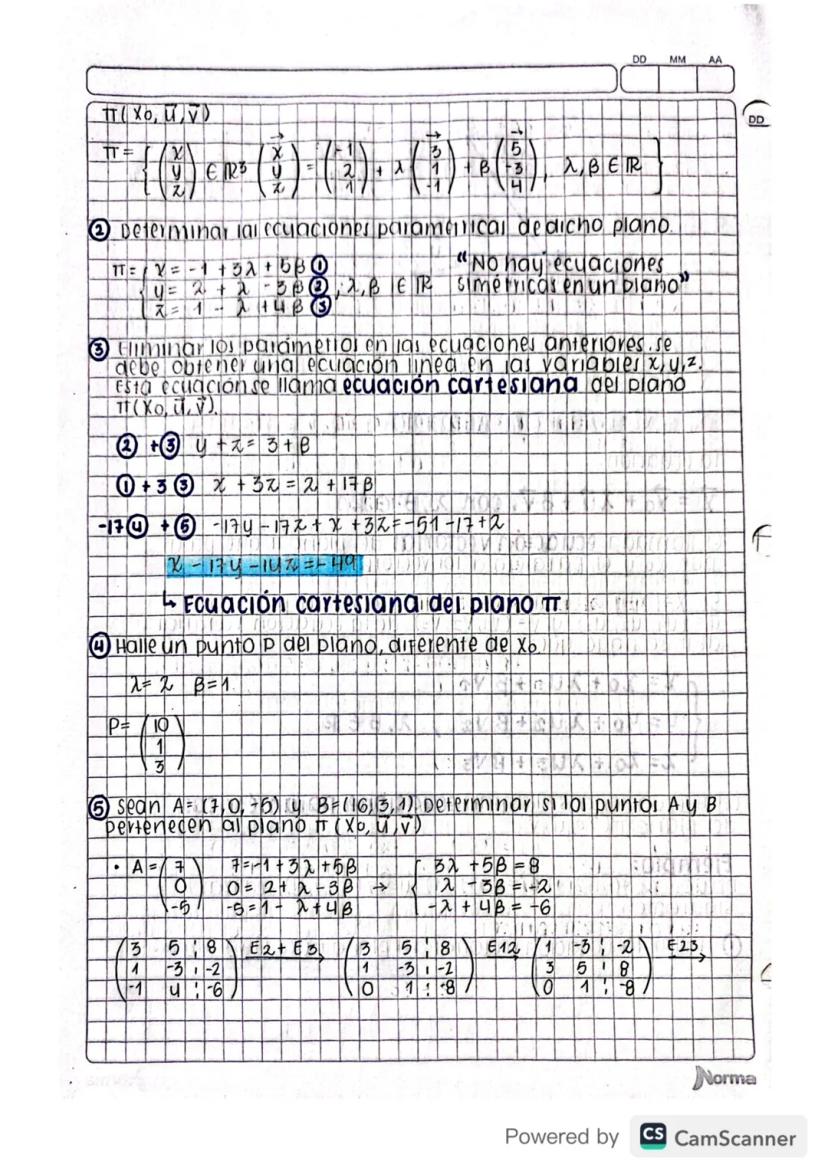 DD MM AA
π(X₀, u⃗, v⃗)
DD
π = { (x y z) ∈ ℝ³ (x y z) = (-1 2 1) + λ (3 1 -1) + β (5 -3 4), λ, β ∈ ℝ }
② Determinar las ecuaciones paramétricas de dicho plano.
π = { x = -1 + 3λ + 5β ① "No hay ecuaciones
y = 2 + λ - 3β ② , λ, β ∈ ℝ simétricas en un plano"
z = 1 - λ + 4β ③
③ Eliminar los parámetros en las ecuaciones anteriores. se
debe obtener una ecuación linea en las variables x, y, z.
Esta ecuación se llama ecuación cartesiana del plano
π(X₀, u⃗, v⃗).
② + ③ y + z = 3 + β
① + 3 ③ x + 3z = 2 + 17β
-17④ + ⑤ -17y - 17z + x + 3z = -51 - 17 + 2
x - 17y - 14z = -49
↳ Ecuación cartesiana del plano π
④ Halle un punto P del plano, diferente de X₀
λ = 2 β = 1
P = (10 1 3)
⑤ Sean A = (7, 0, -5) y B = (16, 3, 1). Determinar si los puntos A y B
pertenecen al plano π (X₀, u⃗, v⃗)
• A = (7 0 -5) 7 = -1 + 3λ + 5β { 3λ + 5β = 8
0 = 2 + λ - 3β → λ - 3β = -2
-5 = 1 - λ + 4β -λ + 4β = -6
(3 5 ¦ 8 E2 + E3 (3 5 ¦ 8 E12 (1 -3 ¦ -2 E23
1 -3 ¦ -2 → 1 -3 ¦ -2 → 3 5 ¦ 8 →
-1 4 ¦ -6) 0 1 ¦ -8) 0 1 ¦ -8)
Norma
Powered by CS CamScanner